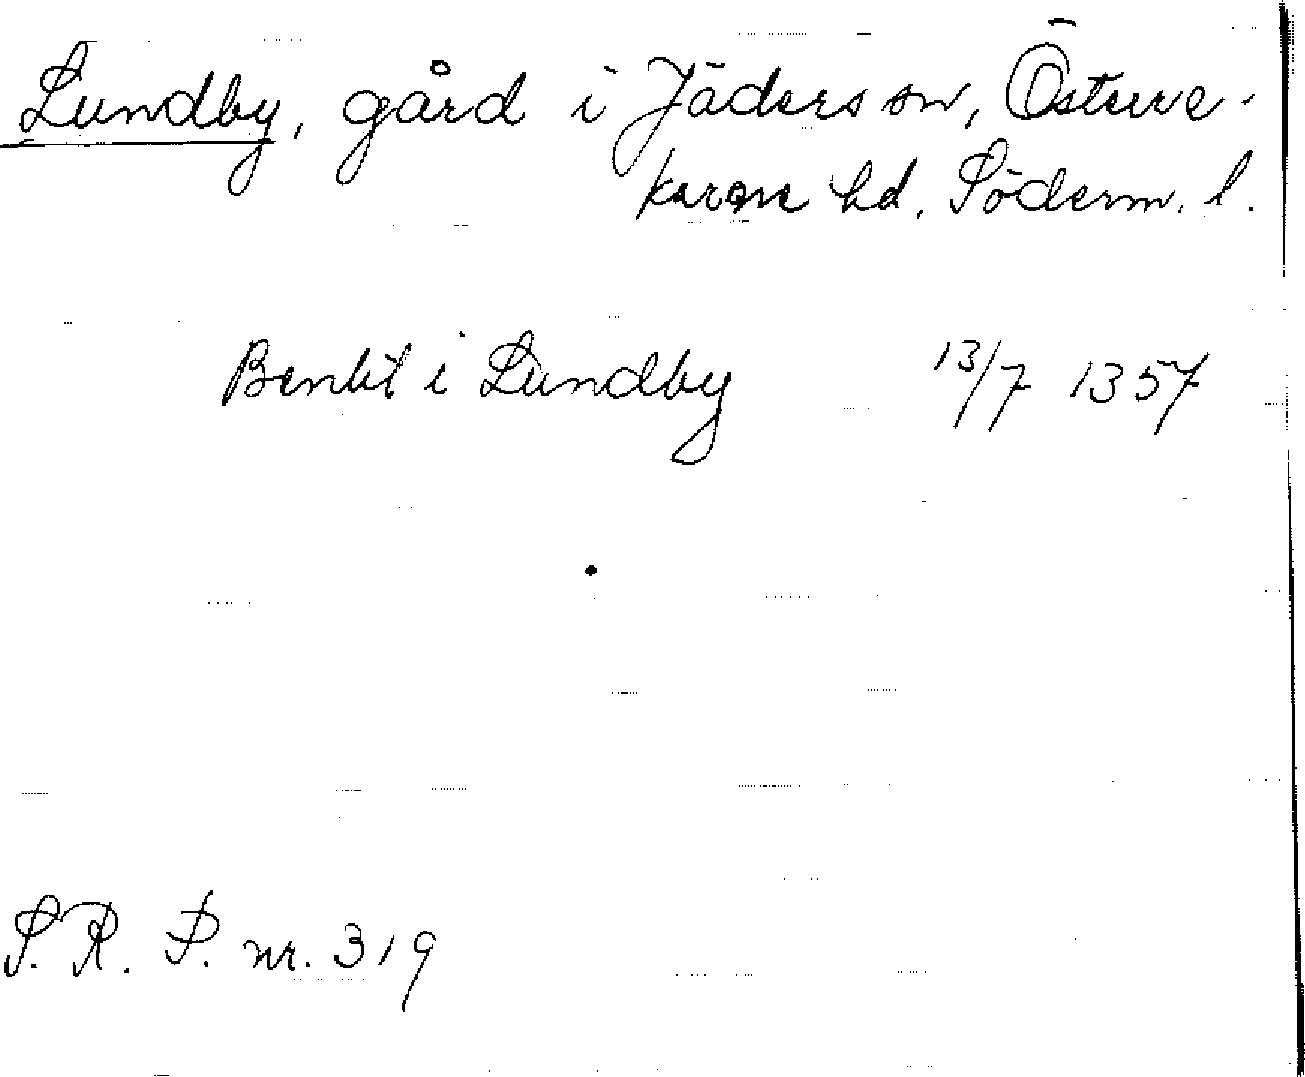 Lundby, gård i Jäders sn, Österre-
karne hd. Söderm. l.
Benkt i Lundby 13/7 1357
S. R. P. nr. 319